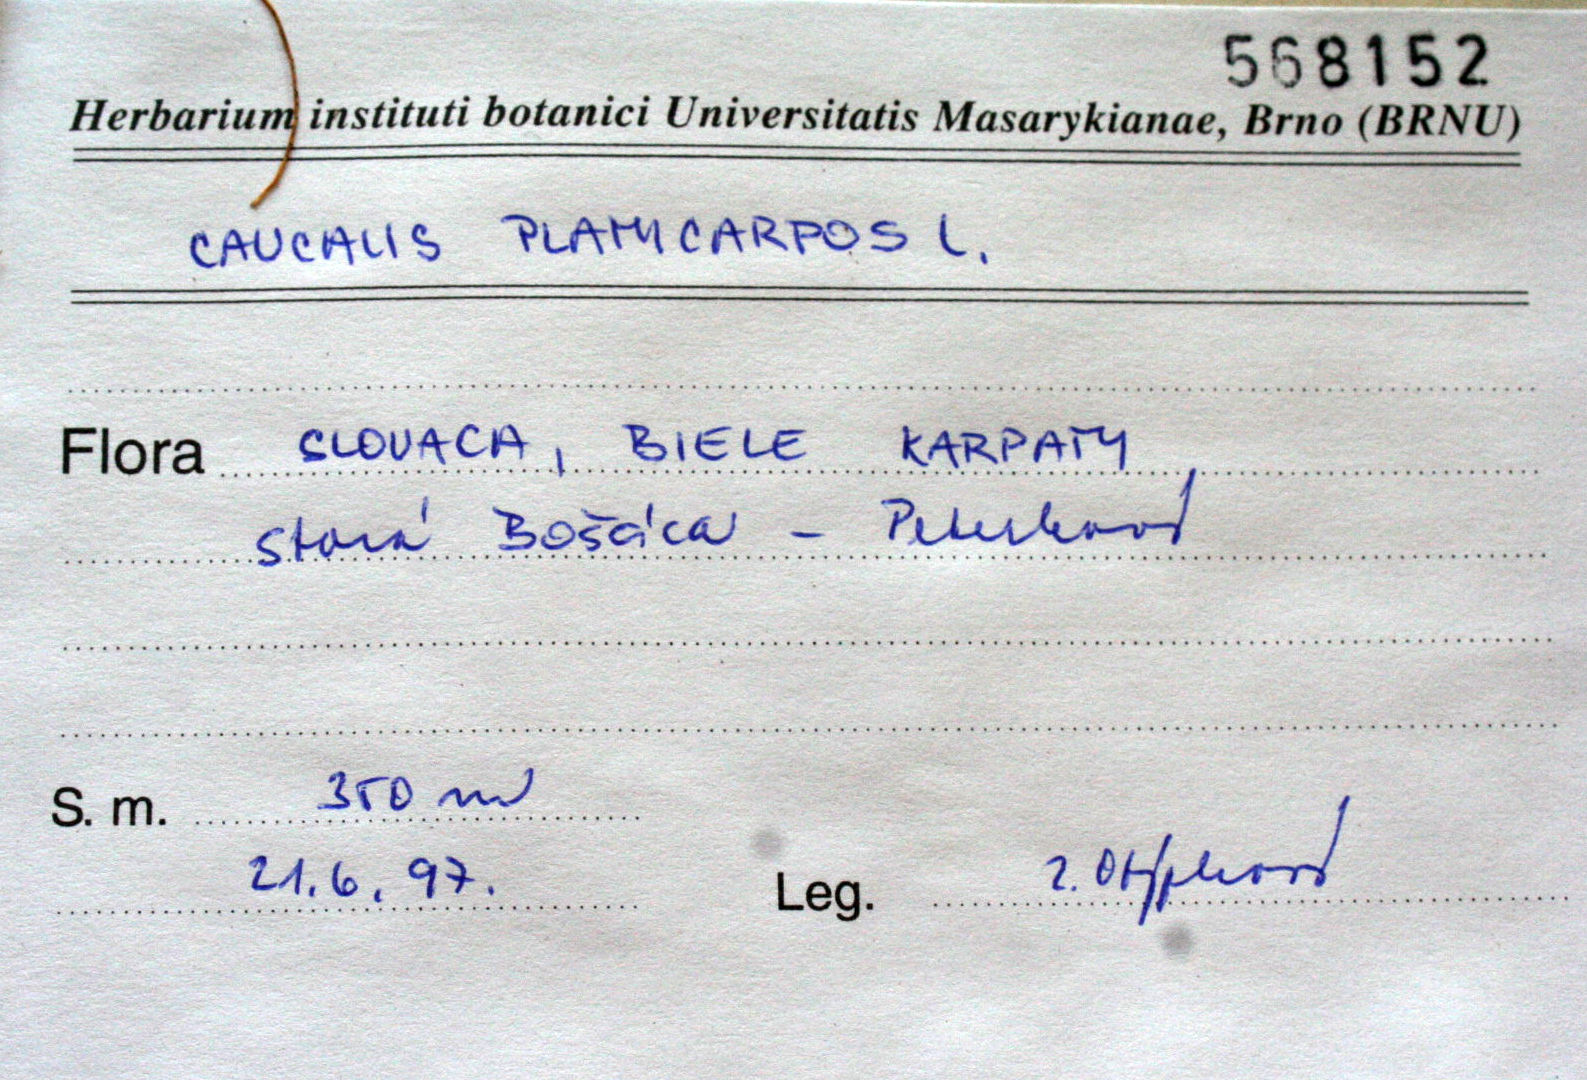 568152
Herbarium instituti botanici Universitatis Masarykianae, Brno (BRNU)
CAUCALIS PLATYCARPOS L.
Flora SLOVACA, BIELE KARPATY
Stará Bošáca –
S. m. 350 m
21.6.97.
Leg. Z.